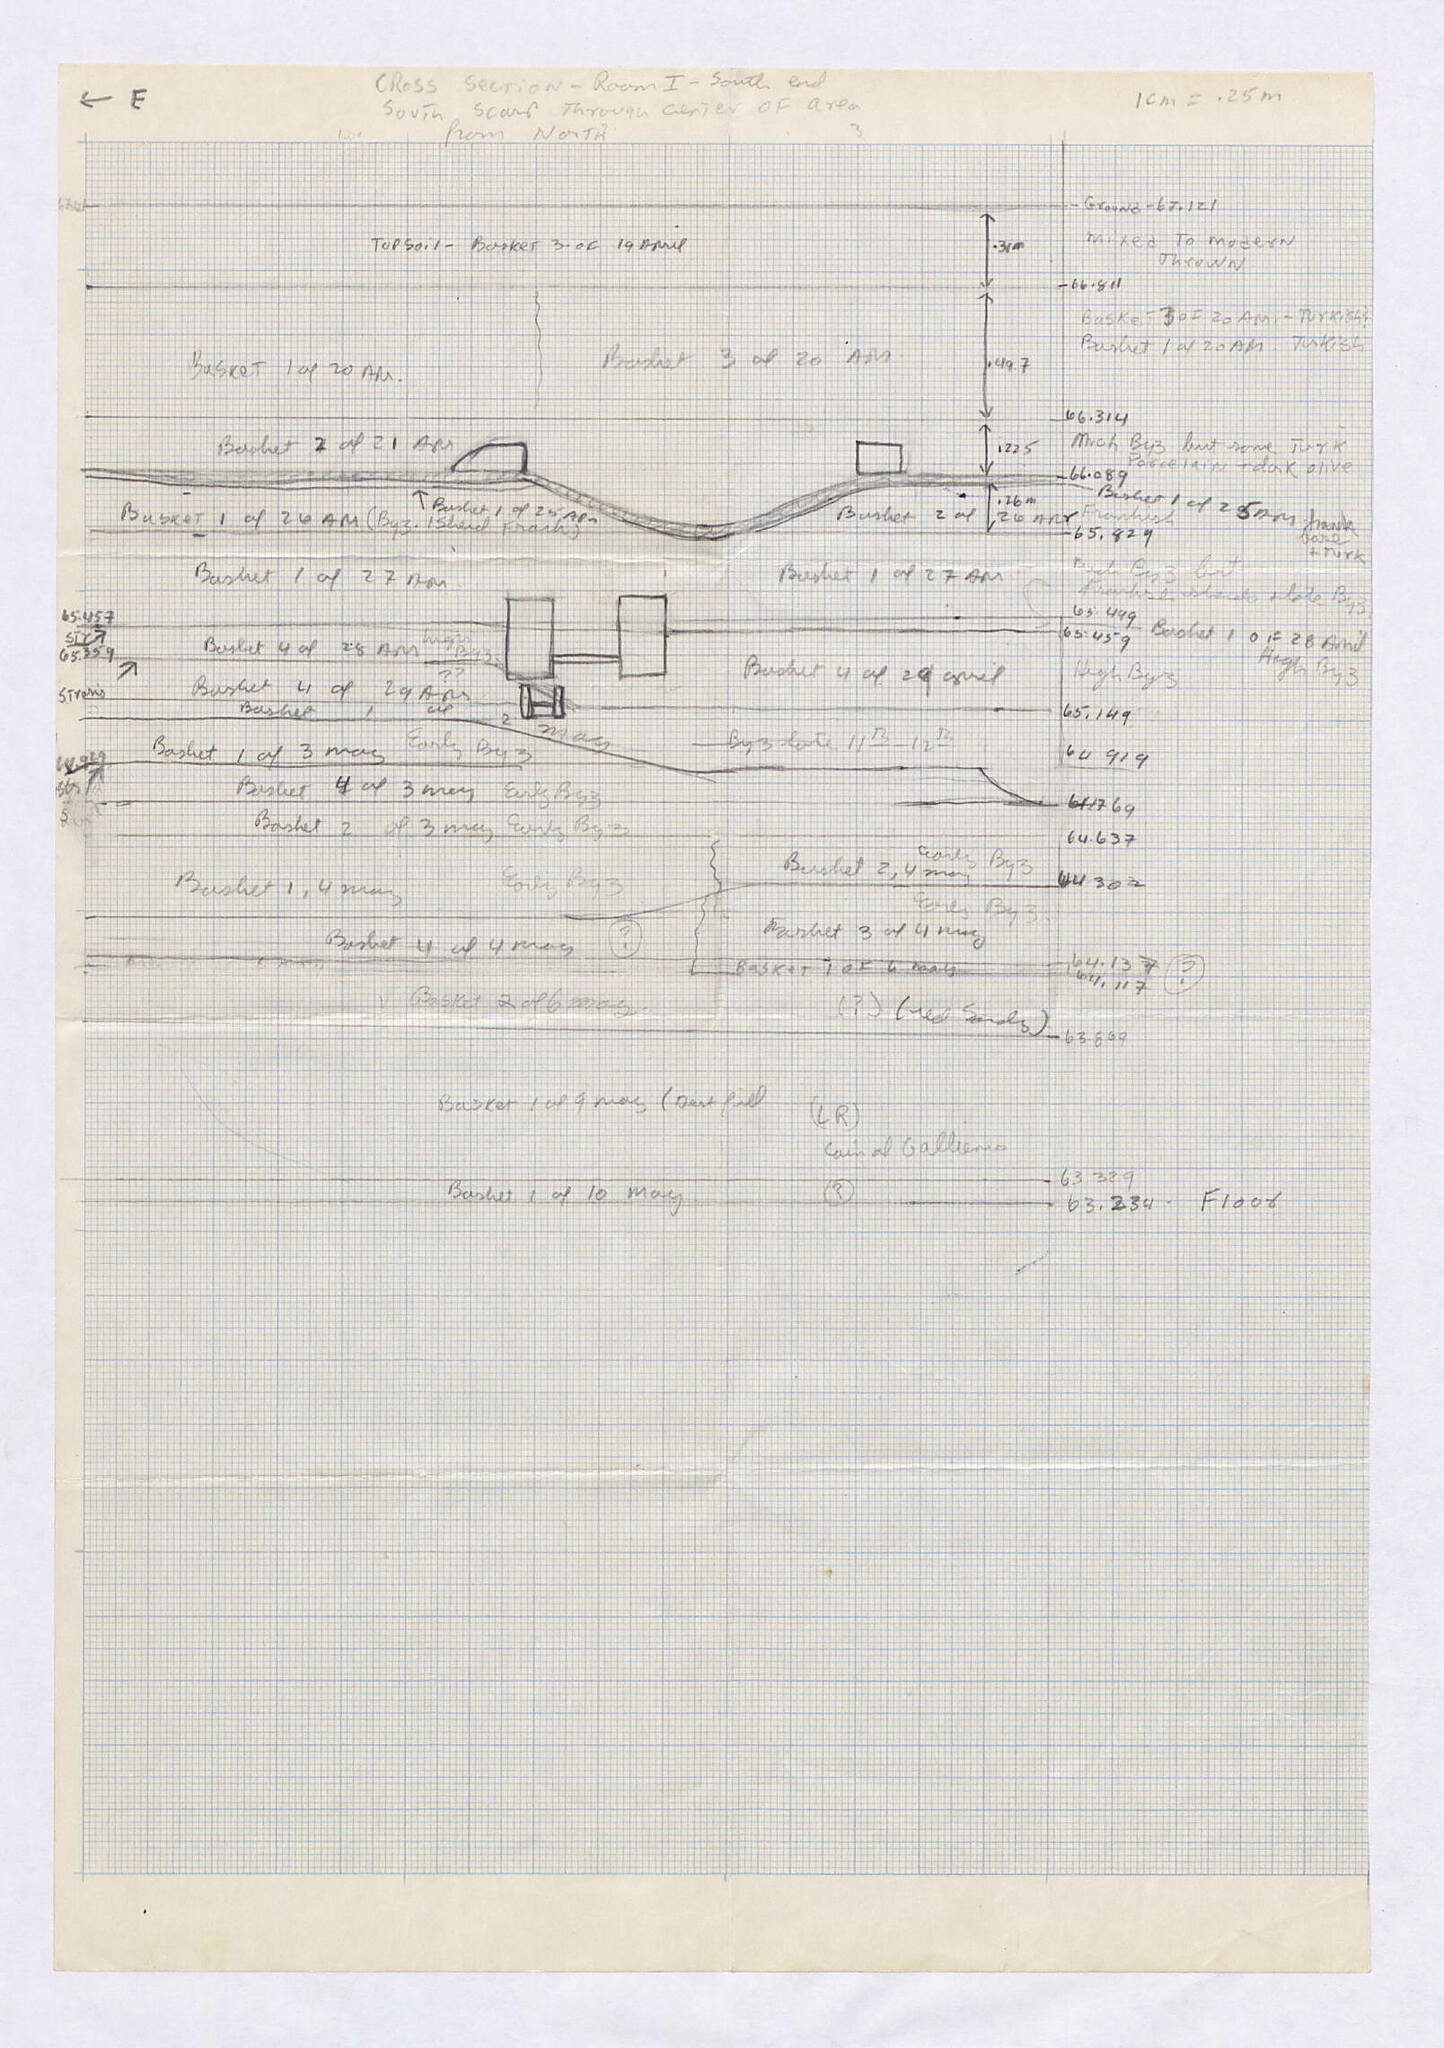 ← E
Cross Section - Room I - South end
South Scarp Through Center of Area
from North
1cm = .25m
3
Ground - 67.121
Topsoil - Basket 3 of 19 April
.31m
Mixed To modern
Thrown
66.811
Basket 3 of 20 Ap. - Turkish
Basket 1 of 20 Ap. Turkish
Basket 1 of 20 Ap.
Basket 3 of 20 Ap.
.497
66.314
Basket 2 of 21 Apr
.225
Much Byz but some Turk
Porcelain + dark olive
66.089
Basket 1 of 25 Apr
Basket 1 of 25 Apr
Frankish
Basket 1 of 26 Apr (Byz. 1 Sherd Frank)
Basket 2 of 26 Apr
.26m
65.829
+ Turk
Basket 1 of 27 Apr.
Basket 1 of 27 Apr
Much Byz but
+ late Byz
65.457
65.499
65.459
Basket 1 of 28 April
High Byz
65.359
Basket 4 of 28 Apr
High
Byz
??
Basket 4 of 29 April
High Byz
Basket 4 of 29 Apr
Basket 1 of 2 May
65.149
Byz late 11th 12th
64.919
Basket 1 of 3 May Early Byz
64.929
Basket 4 of 3 May Early Byz
64.769
Basket 2 of 3 May Early Byz
64.637
Basket 2, 4 May
Early Byz
64.302
Basket 1, 4 May Early Byz
Early Byz
Basket 3 of 4 May
Basket 4 of 4 May ?
64.137 ?
Basket 1 of 6 May
64.117
Basket 2 of 6 May.
(?) (red Sandy)
63.869
Basket 1 of 9 May
(LR)
Coin of Gallienus
63.329
Basket 1 of 10 May
?
63.234 - Floor